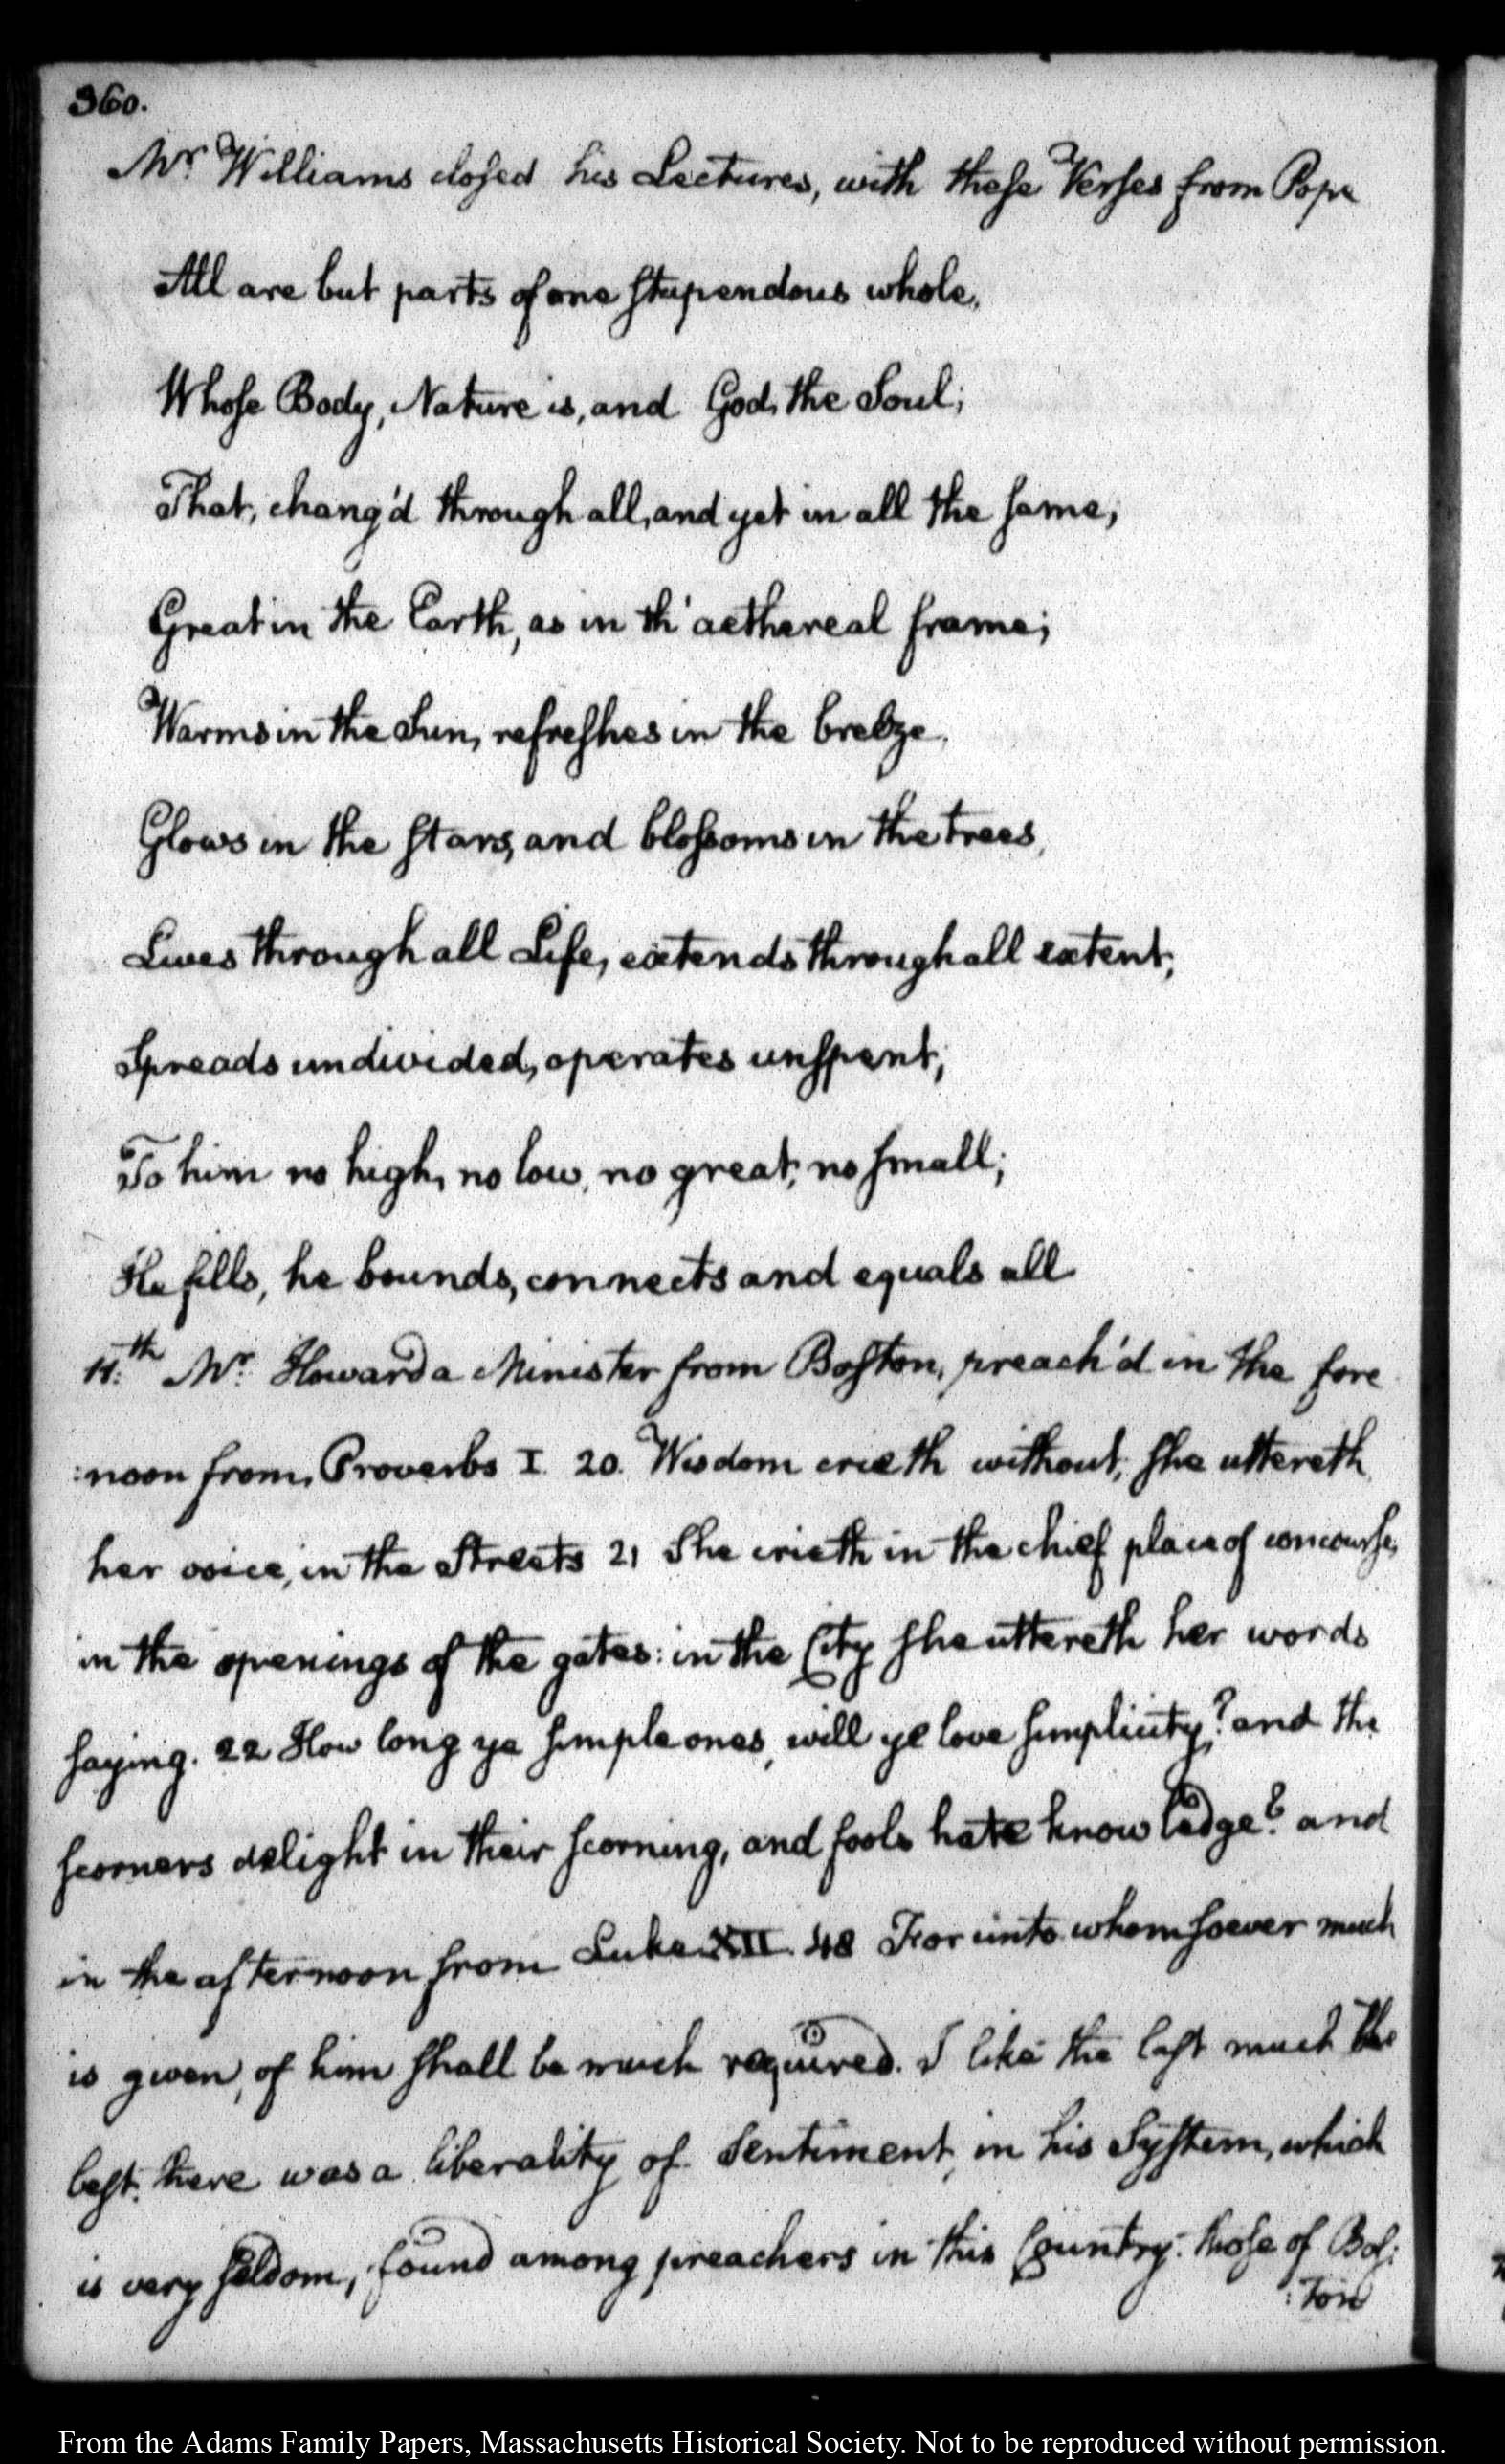 360.
Mr. Williams closed his Lectures, with these Verses from Pope
All are but parts of one stupendous whole,
Whose Body, Nature is, and God, the Soul;
That, chang'd through all, and yet in all the same,
Great in the Earth, as in th' aethereal frame;
Warms in the Sun, refreshes in the breeze,
Glows in the stars, and blossoms in the trees,
Lives through all Life, extends through all extent,
Spreads undivided, operates unspent;
To him no high, no low, no great, no small;
He fills, he bounds, connects and equals all
11.th Mr. Howard a Minister from Boston, preach'd in the fore
:noon from, Proverbs I. 20. Wisdom crieth without, she uttereth
her voice, in the Streets 21 She crieth in the chief place of concourse,
in the openings of the gates: in the City she uttereth her words
saying. 22 How long ye simple ones, will ye love simplicity? and the
scorners delight in their scorning, and fools hate knowledge? and
in the afternoon from Luke XII. 48 For unto whomsoever much
is given, of him shall be much required. I like the last much the
best. there was a liberality of Sentiment, in his System, which
is very seldom, found among preachers in this Country. those of Bos:
:ton
From the Adams Family Papers, Massachusetts Historical Society. Not to be reproduced without permission.